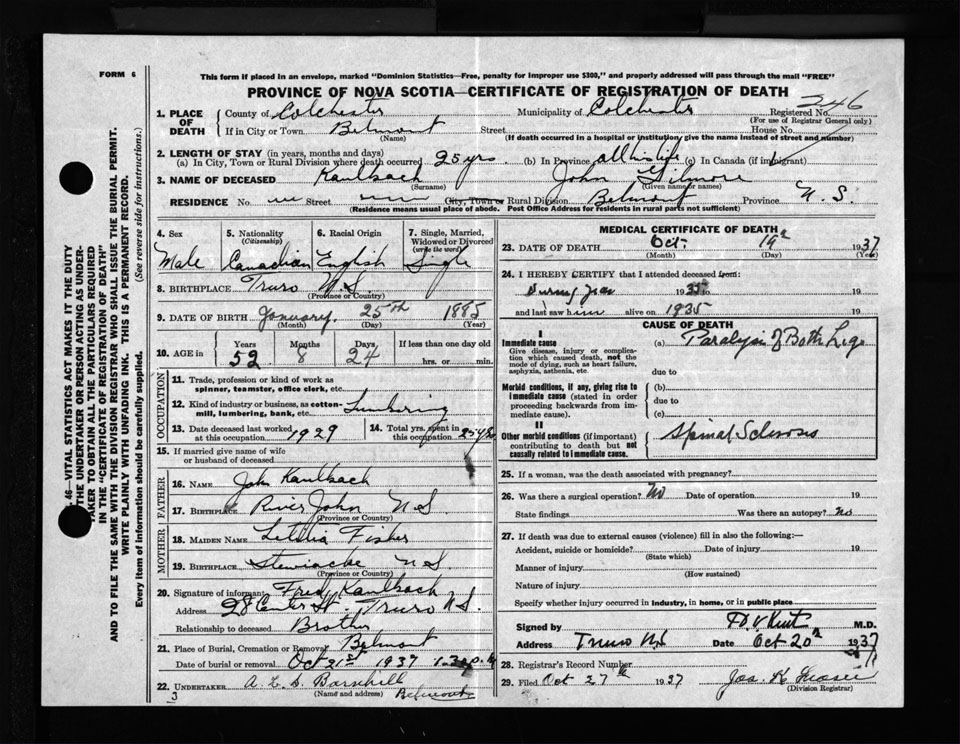 FORM 6
This form if placed in an envelope, marked "Dominion Statistics—Free, penalty for improper use $300," and properly addressed will pass through the mail "FREE"
PROVINCE OF NOVA SCOTIA—CERTIFICATE OF REGISTRATION OF DEATH
1. PLACE OF DEATH
County of Colchester Municipality of Colchester Registered No. 246
(For use of Registrar General only)
If in City or Town Belmont Street House No.
(Name) (If death occurred in a hospital or institution give the name instead of street and number)
2. LENGTH OF STAY (in years, months and days)
(a) In City, Town or Rural Division where death occurred 25 yrs. (b) In Province all his life (c) In Canada (if immigrant)
3. NAME OF DECEASED Kaulback John Gilmore
(Surname) (Given name or names)
RESIDENCE No. Street City, Town or Rural Division Belmont Province N.S.
(Residence means usual place of abode. Post Office Address for residents in rural parts not sufficient)
C. 46—VITAL STATISTICS ACT MAKES IT THE DUTY
THE UNDERTAKER OR PERSON ACTING AS UNDER-
TAKER TO OBTAIN ALL THE PARTICULARS REQUIRED
IN THE "CERTIFICATE OF REGISTRATION OF DEATH"
AND TO FILE THE SAME WITH THE DIVISION REGISTRAR WHO SHALL ISSUE THE BURIAL PERMIT.
WRITE PLAINLY WITH UNFADING INK. THIS IS A PERMANENT RECORD.
Every item of information should be carefully supplied. (See reverse side for instructions.)
4. Sex
Male
5. Nationality
(Citizenship)
Canadian
6. Racial Origin
English
7. Single, Married,
Widowed or Divorced
(write the word)
Single
8. BIRTHPLACE Truro N.S.
(Province or Country)
9. DATE OF BIRTH January 25th 1885
(Month) (Day) (Year)
10. AGE in Years 52 Months 8 Days 24 If less than one day old
hrs. or min.
OCCUPATION
11. Trade, profession or kind of work as
spinner, teamster, office clerk, etc.
12. Kind of industry or business, as cotton-
mill, lumbering, bank, etc. Lumbering
13. Date deceased last worked
at this occupation 1929
14. Total yrs. spent in
this occupation 25 yrs
15. If married give name of wife
or husband of deceased
FATHER
16. NAME John Kaulback
17. BIRTHPLACE River John N.S.
(Province or Country)
MOTHER
18. MAIDEN NAME Letitia Fisher
19. BIRTHPLACE Stewiacke N.S.
(Province or Country)
20. Signature of informant Fred Kaulback
Address 28 Center St. Truro N.S.
Relationship to deceased Brother
21. Place of Burial, Cremation or Removal Belmont
Date of burial or removal Oct 21st 1937 1.30 p.m
22. UNDERTAKER A.
(Name and address) Belmont
3
MEDICAL CERTIFICATE OF DEATH
23. DATE OF DEATH Oct 19th 1937
(Month) (Day) (Year)
24. I HEREBY CERTIFY that I attended deceased from:
During year 1935 to 19
and last saw him alive on 1935 19
CAUSE OF DEATH
I
Immediate cause
Give disease, injury or complica-
tion which caused death, not the
mode of dying, such as heart failure,
asphyxia, asthenia, etc.
(a) Paralysis of Both Legs
due to
Morbid conditions, if any, giving rise to
immediate cause (stated in order
proceeding backwards from im-
mediate cause).
(b)
due to
(c)
II
Other morbid conditions (if important)
contributing to death but not
causally related to immediate cause.
Spinal Sclerosis
25. If a woman, was the death associated with pregnancy?
26. Was there a surgical operation? No Date of operation 19
State findings Was there an autopsy? No
27. If death was due to external causes (violence) fill in also the following:—
Accident, suicide or homicide? Date of injury 19
(State which)
Manner of injury
(How sustained)
Nature of injury
Specify whether injury occurred in industry, in home, or in public place
Signed by H.V. Kent M.D.
Address Truro N.S. Date Oct 20th 1937
28. Registrar's Record Number
29. Filed Oct 27th 1937 Jas. K. Fraser
(Division Registrar)